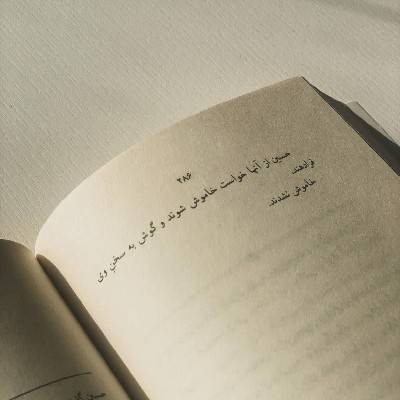 ۲۸۶
حسین از آنها خواست خاموش شوند و گوش به سخن وی
فرادهند.
خاموش نشدند.